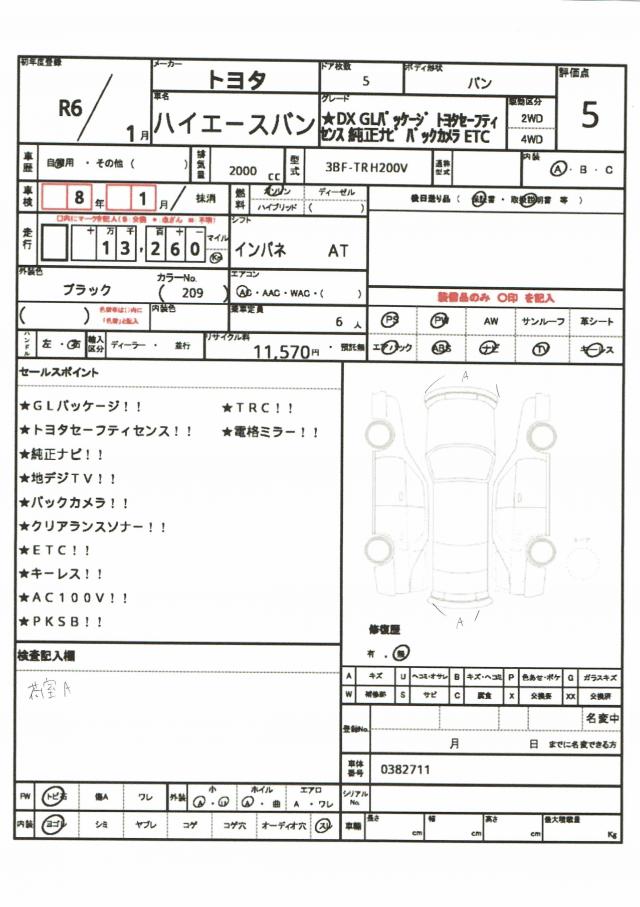 初年度登録
R6
1月
メーカー
トヨタ
ドア枚数
5
ボディ形状
バン
評価点
5
車名
ハイエースバン
グレード
★DX GLパッケージ トヨタセーフティ
センス 純正ナビ バックカメラ ETC
駆動区分
2WD
4WD
車歴
自家用・その他( )
排気量
2000 cc
型式
3BF-TRH200V
通称型式
内装
A・B・C
車検
8年 1月/ 抹消
燃料
ガソリン ディーゼル
ハイブリッド ( )
後日送り品 ( 保証書・取扱説明書 等 )
走行
十 万 千 百 十 一
13,260
マイル
Km
シフト
インパネ AT
外装色
ブラック
カラーNo.
( 209 )
エアコン
AC・AAC・WAC・( )
装備品のみ 〇印 を記入
( )
内装色
乗車定員
6 人
PS PW AW サンルーフ 革シート
ハンドル
左・右
輸入区分
ディーラー・ 並行
リサイクル料
11,570円
・ 預託無
エアバック ABS ナビ TV キーレス
セールスポイント
★GLパッケージ!! ★TRC!!
★トヨタセーフティセンス!! ★電格ミラー!!
★純正ナビ!!
★地デジTV!!
★バックカメラ!!
★クリアランスソナー!!
★ETC!!
★キーレス!!
★AC100V!!
★PKSB!!
A
A
修復歴
有・無
検査記入欄
荷室A
A キズ U ヘコミ・オサレ B キズ・ヘコミ P 色あせ・ボケ G ガラスキズ
W 補修跡 S サビ C 腐食 X 交換要 XX 交換済
登録No.
名変中
月 日 までに名変できる方
車体番号
0382711
シリアルNo.
FW トビ石 傷A ワレ
外装 小 A・U ホイル A・曲 エアロ A・ワレ
内装 ヨゴレ シミ ヤブレ コゲ コゲ穴 オーディオ穴 スレ
車輛
長さ cm
幅 cm
高さ cm
最大積載量 Kg